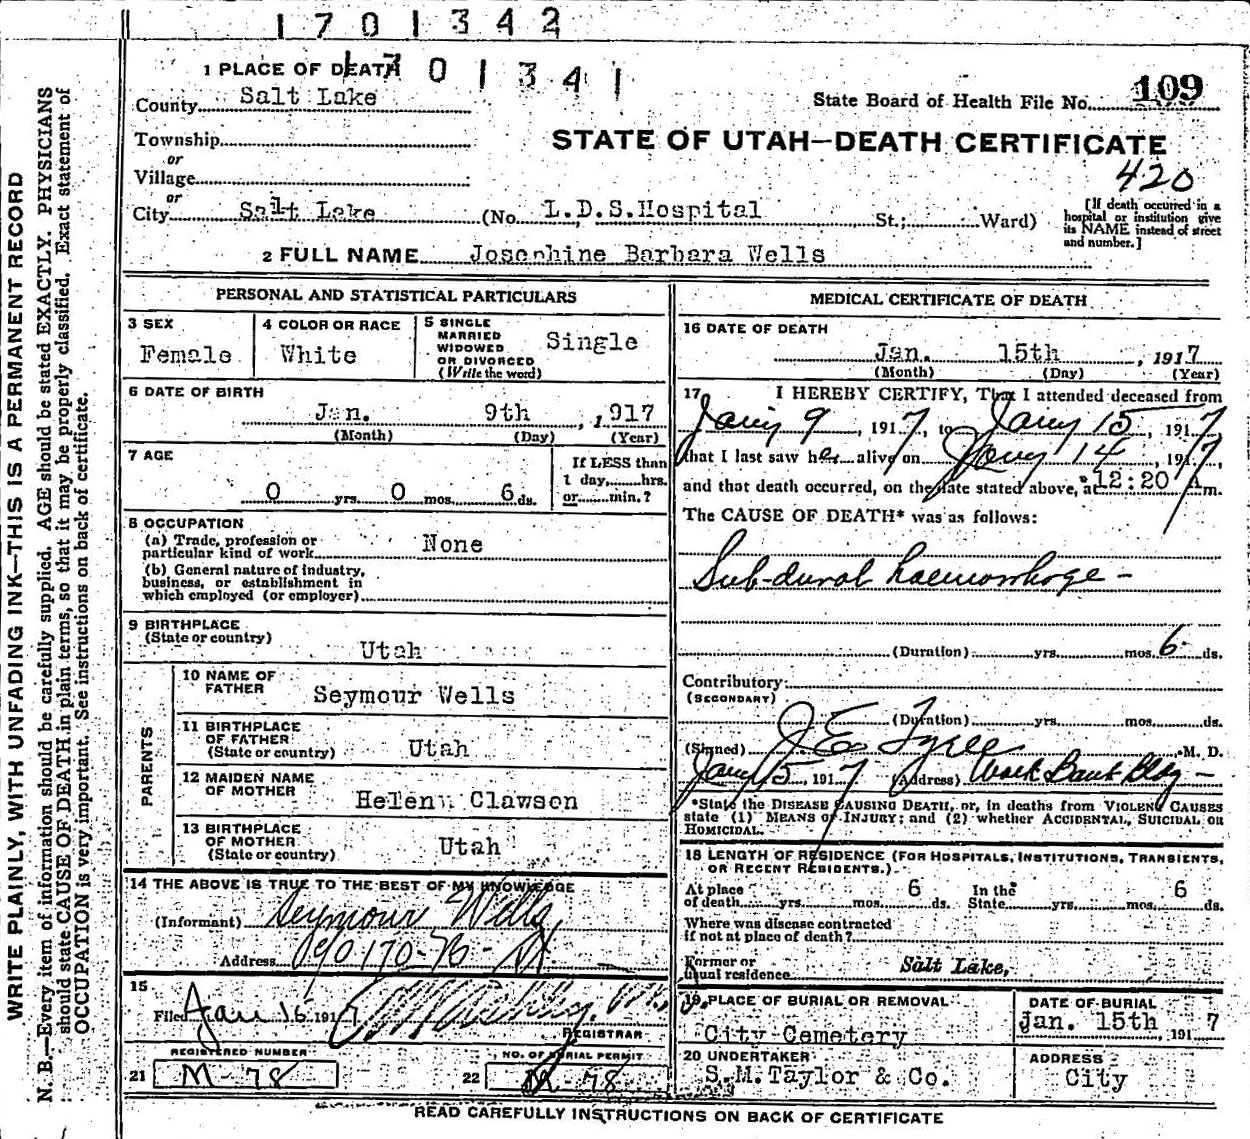 1701342
1701341
1 PLACE OF DEATH
County Salt Lake
State Board of Health File No. 109
Township
STATE OF UTAH—DEATH CERTIFICATE
or
Village
420
or
City Salt Lake (No. L.D.S.Hospital St.; Ward)
[If death occurred in a
hospital or institution give
its NAME instead of street
and number.]
2 FULL NAME Josephine Barbara Wells
PERSONAL AND STATISTICAL PARTICULARS
3 SEX
Female
4 COLOR OR RACE
White
5 SINGLE
MARRIED
WIDOWED
OR DIVORCED
(Write the word)
Single
6 DATE OF BIRTH
Jan. 9th, 1917
(Month) (Day) (Year)
7 AGE
0 yrs 0 mos. 6 ds.
If LESS than
1 day, hrs.
or min.?
8 OCCUPATION
(a) Trade, profession or
particular kind of work None
(b) General nature of industry,
business, or establishment in
which employed (or employer)
9 BIRTHPLACE
(State or country)
Utah
PARENTS
10 NAME OF
FATHER
Seymour Wells
11 BIRTHPLACE
OF FATHER
(State or country)
Utah
12 MAIDEN NAME
OF MOTHER
Helen Clawson
13 BIRTHPLACE
OF MOTHER
(State or country)
Utah
14 THE ABOVE IS TRUE TO THE BEST OF MY KNOWLEDGE
(Informant) Seymour Wells
Address
15
Filed Jan 16 1917
REGISTRAR
REGISTERED NUMBER
21 M-78
NO. OF BURIAL PERMIT
22 M-78
MEDICAL CERTIFICATE OF DEATH
16 DATE OF DEATH
Jan. 15th, 1917
(Month) (Day) (Year)
17 I HEREBY CERTIFY, That I attended deceased from
Jany 9, 1917, to Jany 15, 1917
that I last saw her alive on Jany 14, 1917,
and that death occurred, on the date stated above, at 12:20 A m.
The CAUSE OF DEATH* was as follows:
Sub-dural haemorrhage -
(Duration) yrs. mos. 6 ds.
Contributory
(SECONDARY)
(Duration) yrs. mos. ds.
(Signed) J E Tyree M. D.
Jany 15, 1917 (Address) Bank Bldg -
*State the DISEASE CAUSING DEATH, or, in deaths from VIOLENT CAUSES
state (1) MEANS OF INJURY; and (2) whether ACCIDENTAL, SUICIDAL OR
HOMICIDAL.
18 LENGTH OF RESIDENCE (FOR HOSPITALS, INSTITUTIONS, TRANSIENTS,
OR RECENT RESIDENTS.)
At place
of death yrs. mos. 6 ds. In the
State yrs. mos. 6 ds.
Where was disease contracted
if not at place of death?
Former or
usual residence Salt Lake,
19 PLACE OF BURIAL OR REMOVAL
City Cemetery
DATE OF BURIAL
Jan. 15th, 1917
20 UNDERTAKER
S.M.Taylor & Co.
ADDRESS
City
READ CAREFULLY INSTRUCTIONS ON BACK OF CERTIFICATE
WRITE PLAINLY, WITH UNFADING INK—THIS IS A PERMANENT RECORD
N. B.—Every item of information should be carefully supplied. AGE should be stated EXACTLY. PHYSICIANS
should state CAUSE OF DEATH in plain terms, so that it may be properly classified. Exact statement of
OCCUPATION is very important. See instructions on back of certificate.